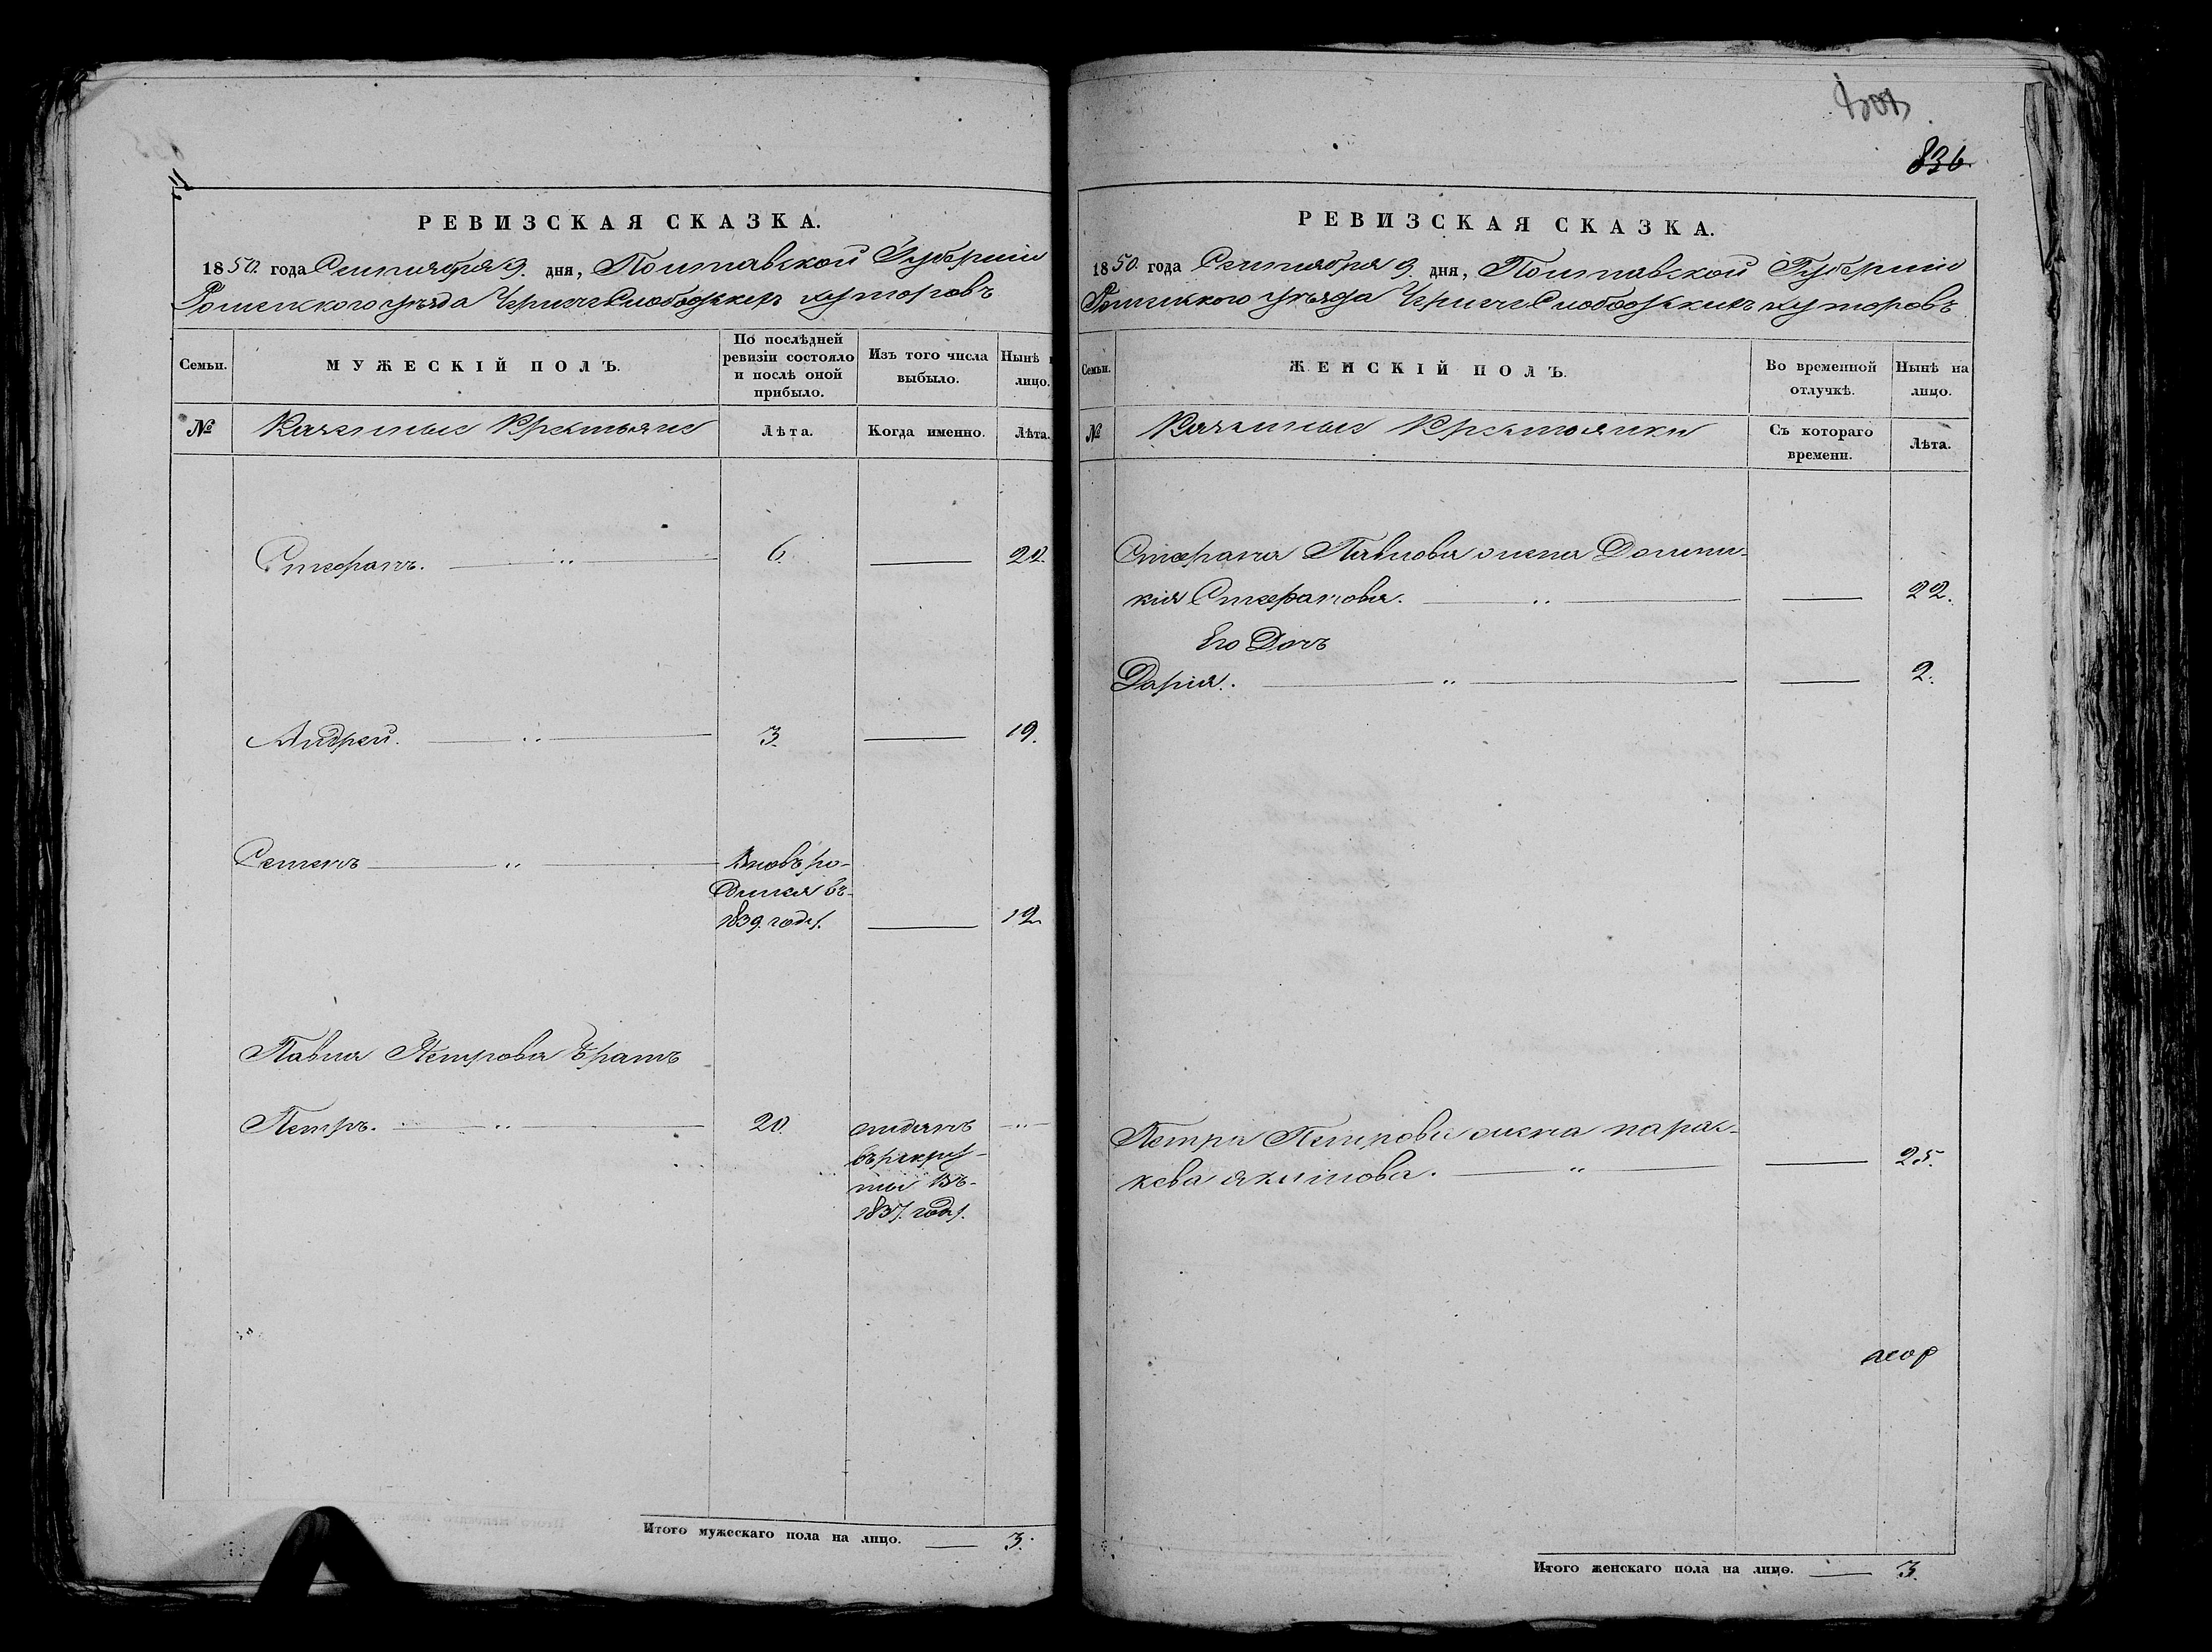 РЕВИЗСКАЯ СКАЗКА.
1850. года Сентября 9. дня, Полтавской Губерніи
Роменскаго уѣзда Чернече Слободскихъ хуторовъ
Семьи.
МУЖЕСКІЙ ПОЛЪ.
По послѣдней ревизіи состояло и послѣ оной прибыло.
Изъ того числа выбыло.
Нынѣ
лицо.
№
Казенные Крестьяне
Лѣта.
Когда именно.
Лѣта.
Стефанъ. 6. 22.
Андрей. 3. 19.
Семенъ Вновь ро-
дился въ
1839. году. 12
Павла Петрова братъ
Петръ. 20. отданъ
въ рекру-
ты въ
1837. году.
Итого мужескаго пола на лицо. 3.
836
РЕВИЗСКАЯ СКАЗКА.
1850. года Сентября 9. дня, Полтавской Губерніи
Роменского уѣзда Чернече Слободскихъ хуторовъ
Семьи.
ЖЕНСКІЙ ПОЛЪ.
Во временной отлучкѣ.
Нынѣ на лицо.
№
Казенные Крестьянки
Съ котораго времени.
Лѣта.
Стефана Павлова жена Домни-
кія Стефанова. 22.
Его Дочь
Дарія. 2.
Петра Петрова жена парас-
кева якимова. 25.
Итого женскаго пола на лицо. 3.